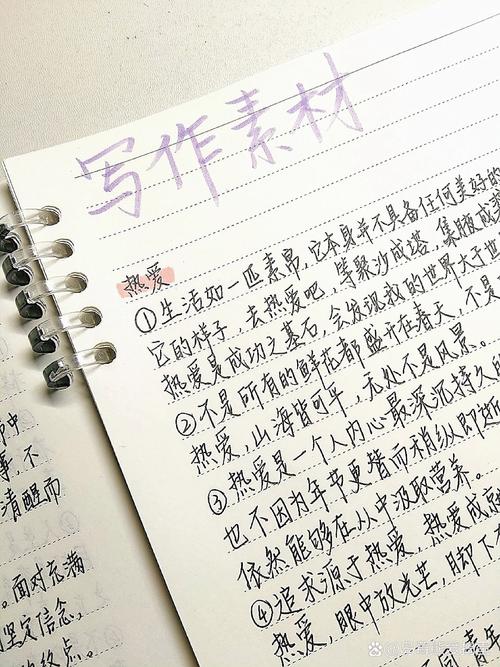 写作素材
热爱
①生活如一匹素帛,它本身并不具备任何美好的
它的样子,去热爱吧,等聚沙成塔,集腋成裘
热爱是成功之基石,会发现我的世界大于世
②不是所有的鲜花都盛开在春天,不是
热爱,山海皆可平,无处不是风景。
③热爱是一个人内心最深沉持久的
也不因为年节更替而稍纵即逝
依然能够在从中汲取营养。
④追求源于热爱,热爱成就
热爱,眼中放光芒,脚下
清醒而
面对充满
坚定信念,
终点。